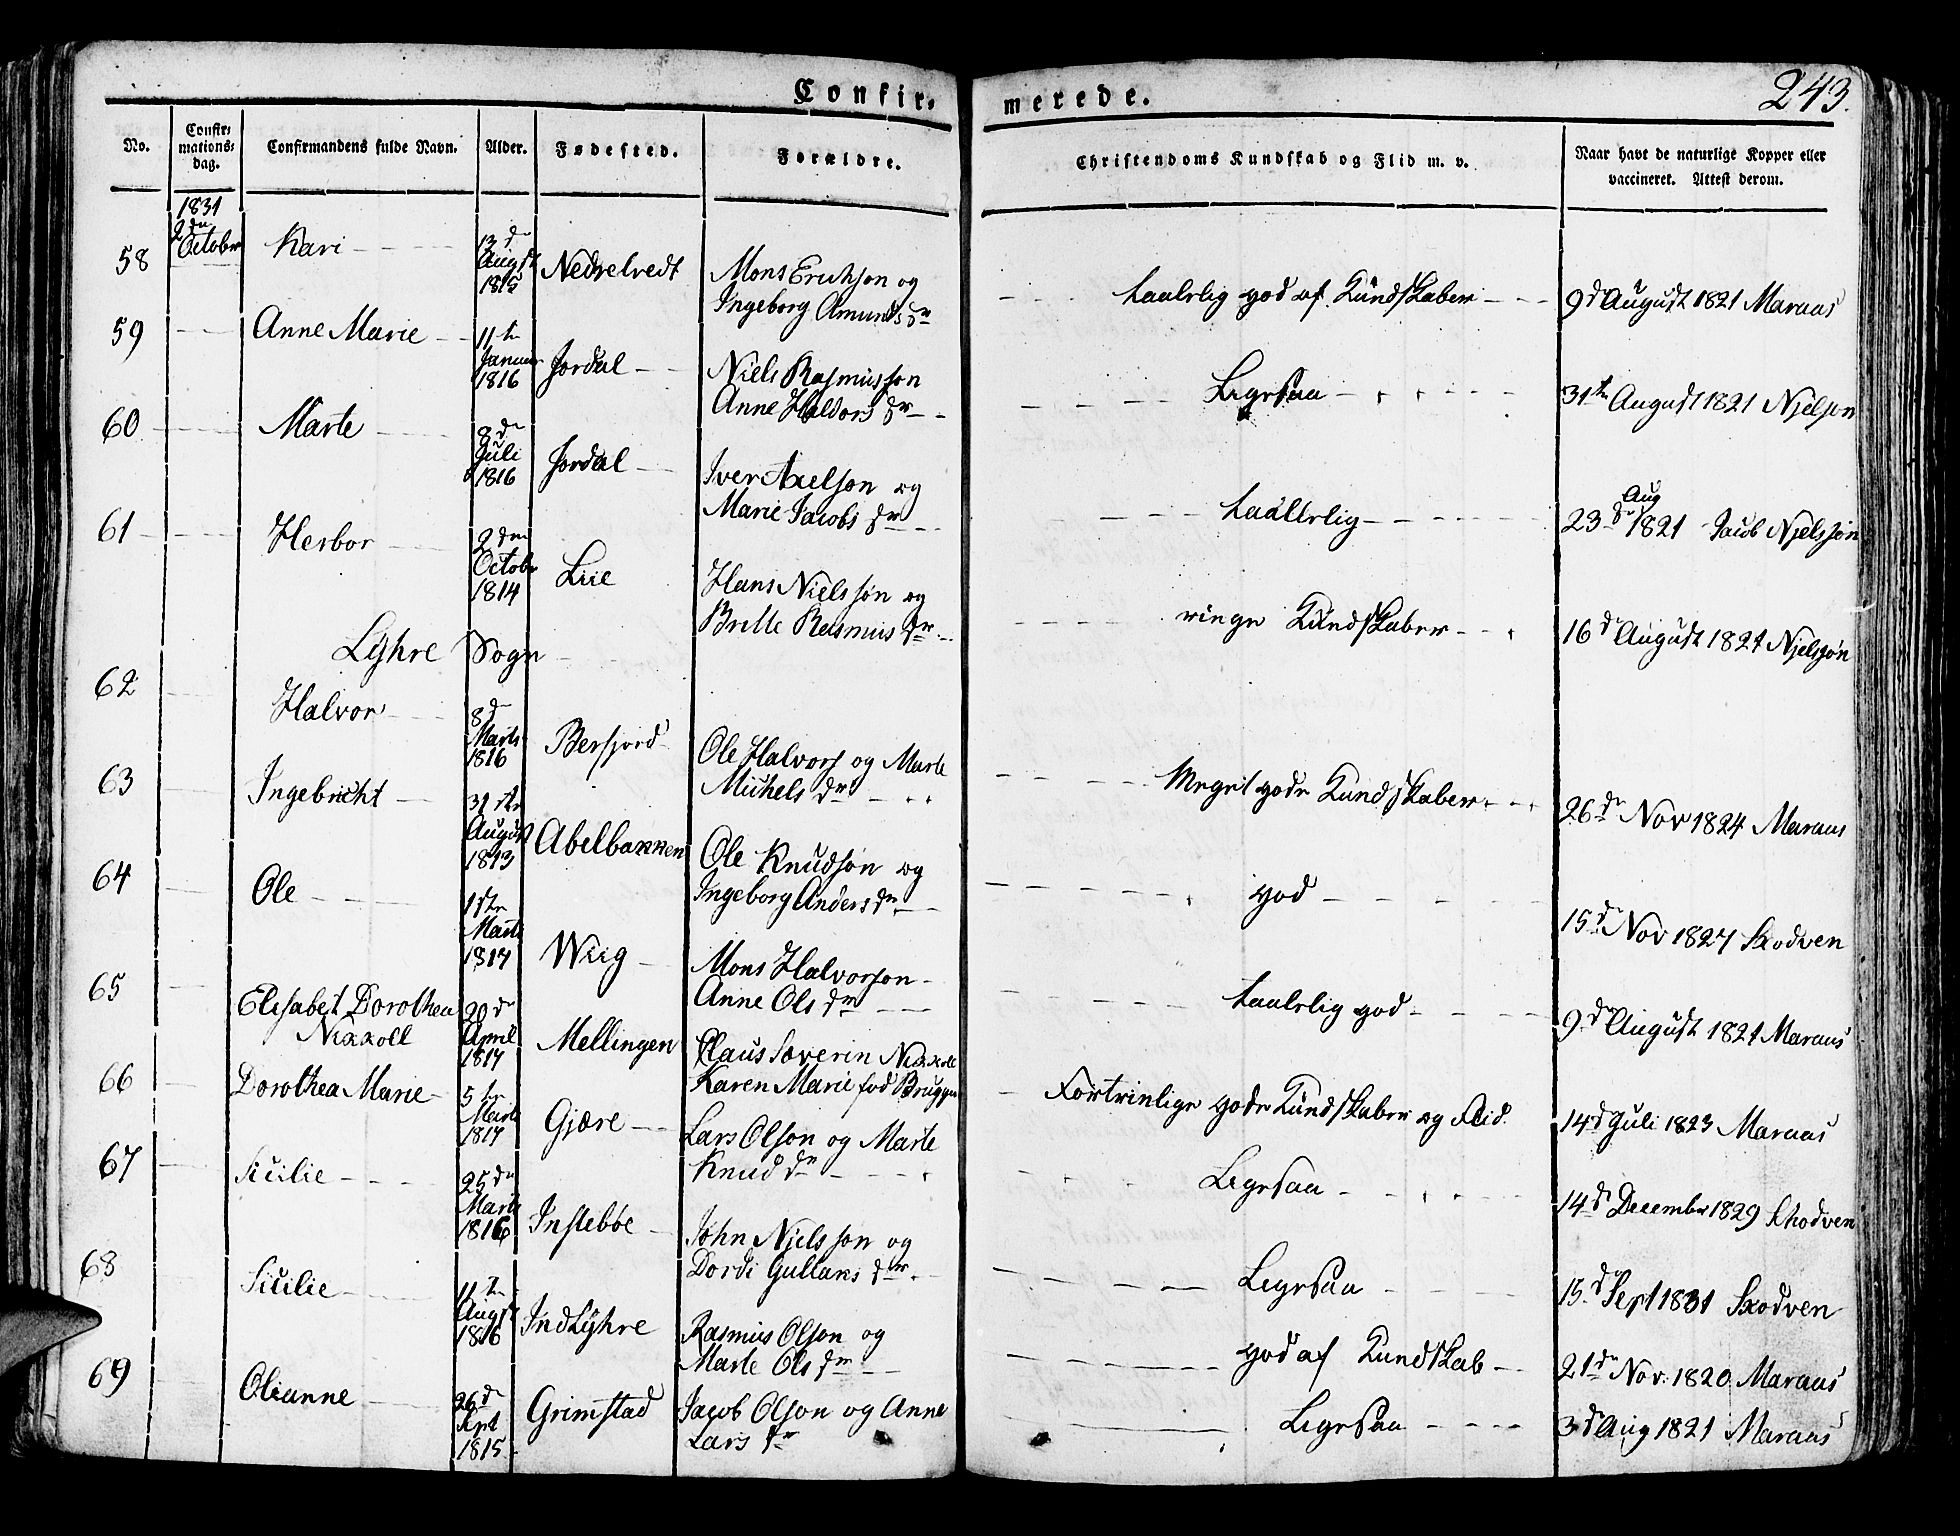 Confir-
merede.
243.
No.
Confir-
mations-
dag.
Confirmandens fulde Navn.
Alder.
Fødested.
Forældre.
Christendoms Kundskab og Flid m. v.
Naar havt de naturlige Kopper eller
vaccineret. Attest derom.
1831
2den
October
58 Kari 13de August 1815 Nedrelvedt Mons Erichson og
Ingeborg Amunds Dr
taalelig god af Kundskaber 9d August 1821 Maraas
59 Anne Marie 11te Januar 1816 Jordal Niels Rasmusson
Anne Haldors Dr
Ligesaa 31te August 1821 Njelson
60 Marte 8de Juli 1816 Jordal Iver Axelson og
Marie Jacobs Dr
taalelig 23de Aug 1821 Jacob Njelssøn
61 Herbor 2den Octobr 1814 Liie Hans Nielssøn og
Britte Rasmus Dr
ringe Kundskaber 16d August 1821 Njelsøn
Lyhre Sogn
62 Halvor 8d Marts 1816 Berfjord Ole Halvors og Marte
Michels Dr
Meget gode Kundskaber 26de Nov 1824 Maraas
63 Ingebricht 31te August 1813 Abelbakken Ole Knudsøn og
Ingeborg Anders Dr
god 15d Nov 1827 Skodven
64 Ole 1ste Marts 1817 Wiig Mons Halvorson
Anne Ols Dr
taalelig god 9d August 1821 Maraas
65 Elisabet Dorothea
Nikkoll
20d April 1817 Mellingen Claus Severin Nikkoll
Karen Marie fød Brugger
Fortrinlige gode Kundskaber og Flid. 14d Juli 1823 Maraas
66 Dorothea Marie 5te Marts 1817 Gjære Lars Olson og Marte
Knud Dr
Ligesaa 14d December 1829 Skodven
67 Sicilie 25de Marts 1816 Instebøe John Njelssøn og
Dordi Gullaks Dr
Ligesaa 15d Sept 1831 Skodven
68 Sicilie 11te Augst 1816 IndLyhre Rasmus Olson og
Marte Ols Dr
god af Kundskab 21de Nov. 1820 Maraas
69 Olianne 26d Sept 1815 Grimstad Jacob Olson og Anne
Lars Dr
Ligesaa 3d Aug 1821 Maraas